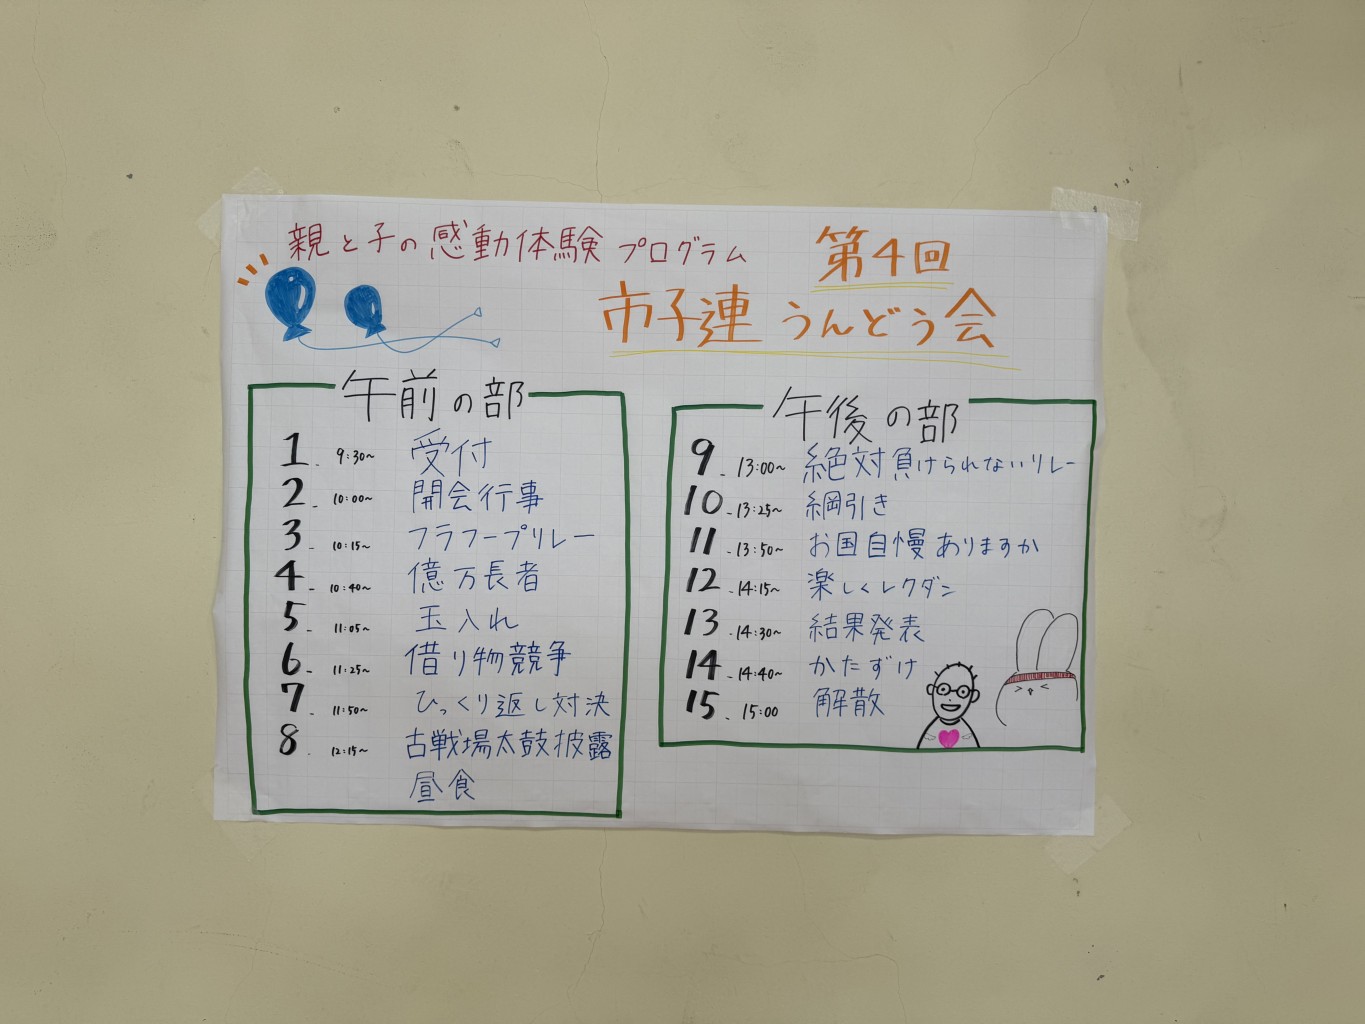 親と子の感動体験プログラム
第4回
市子連うんどう会
午前の部
1. 9:30~ 受付
2. 10:00~ 開会行事
3. 10:15~ フラフープリレー
4. 10:40~ 億万長者
5. 11:05~ 玉入れ
6. 11:25~ 借り物競争
7. 11:50~ ひっくり返し対決
8. 12:15~ 古戦場太鼓披露
昼食
午後の部
9. 13:00~ 絶対負けられないリレー
10. 13:25~ 綱引き
11. 13:50~ お国自慢ありますか
12. 14:15~ 楽しくレクダン
13. 14:30~ 結果発表
14. 14:40~ かたずけ
15. 15:00 解散